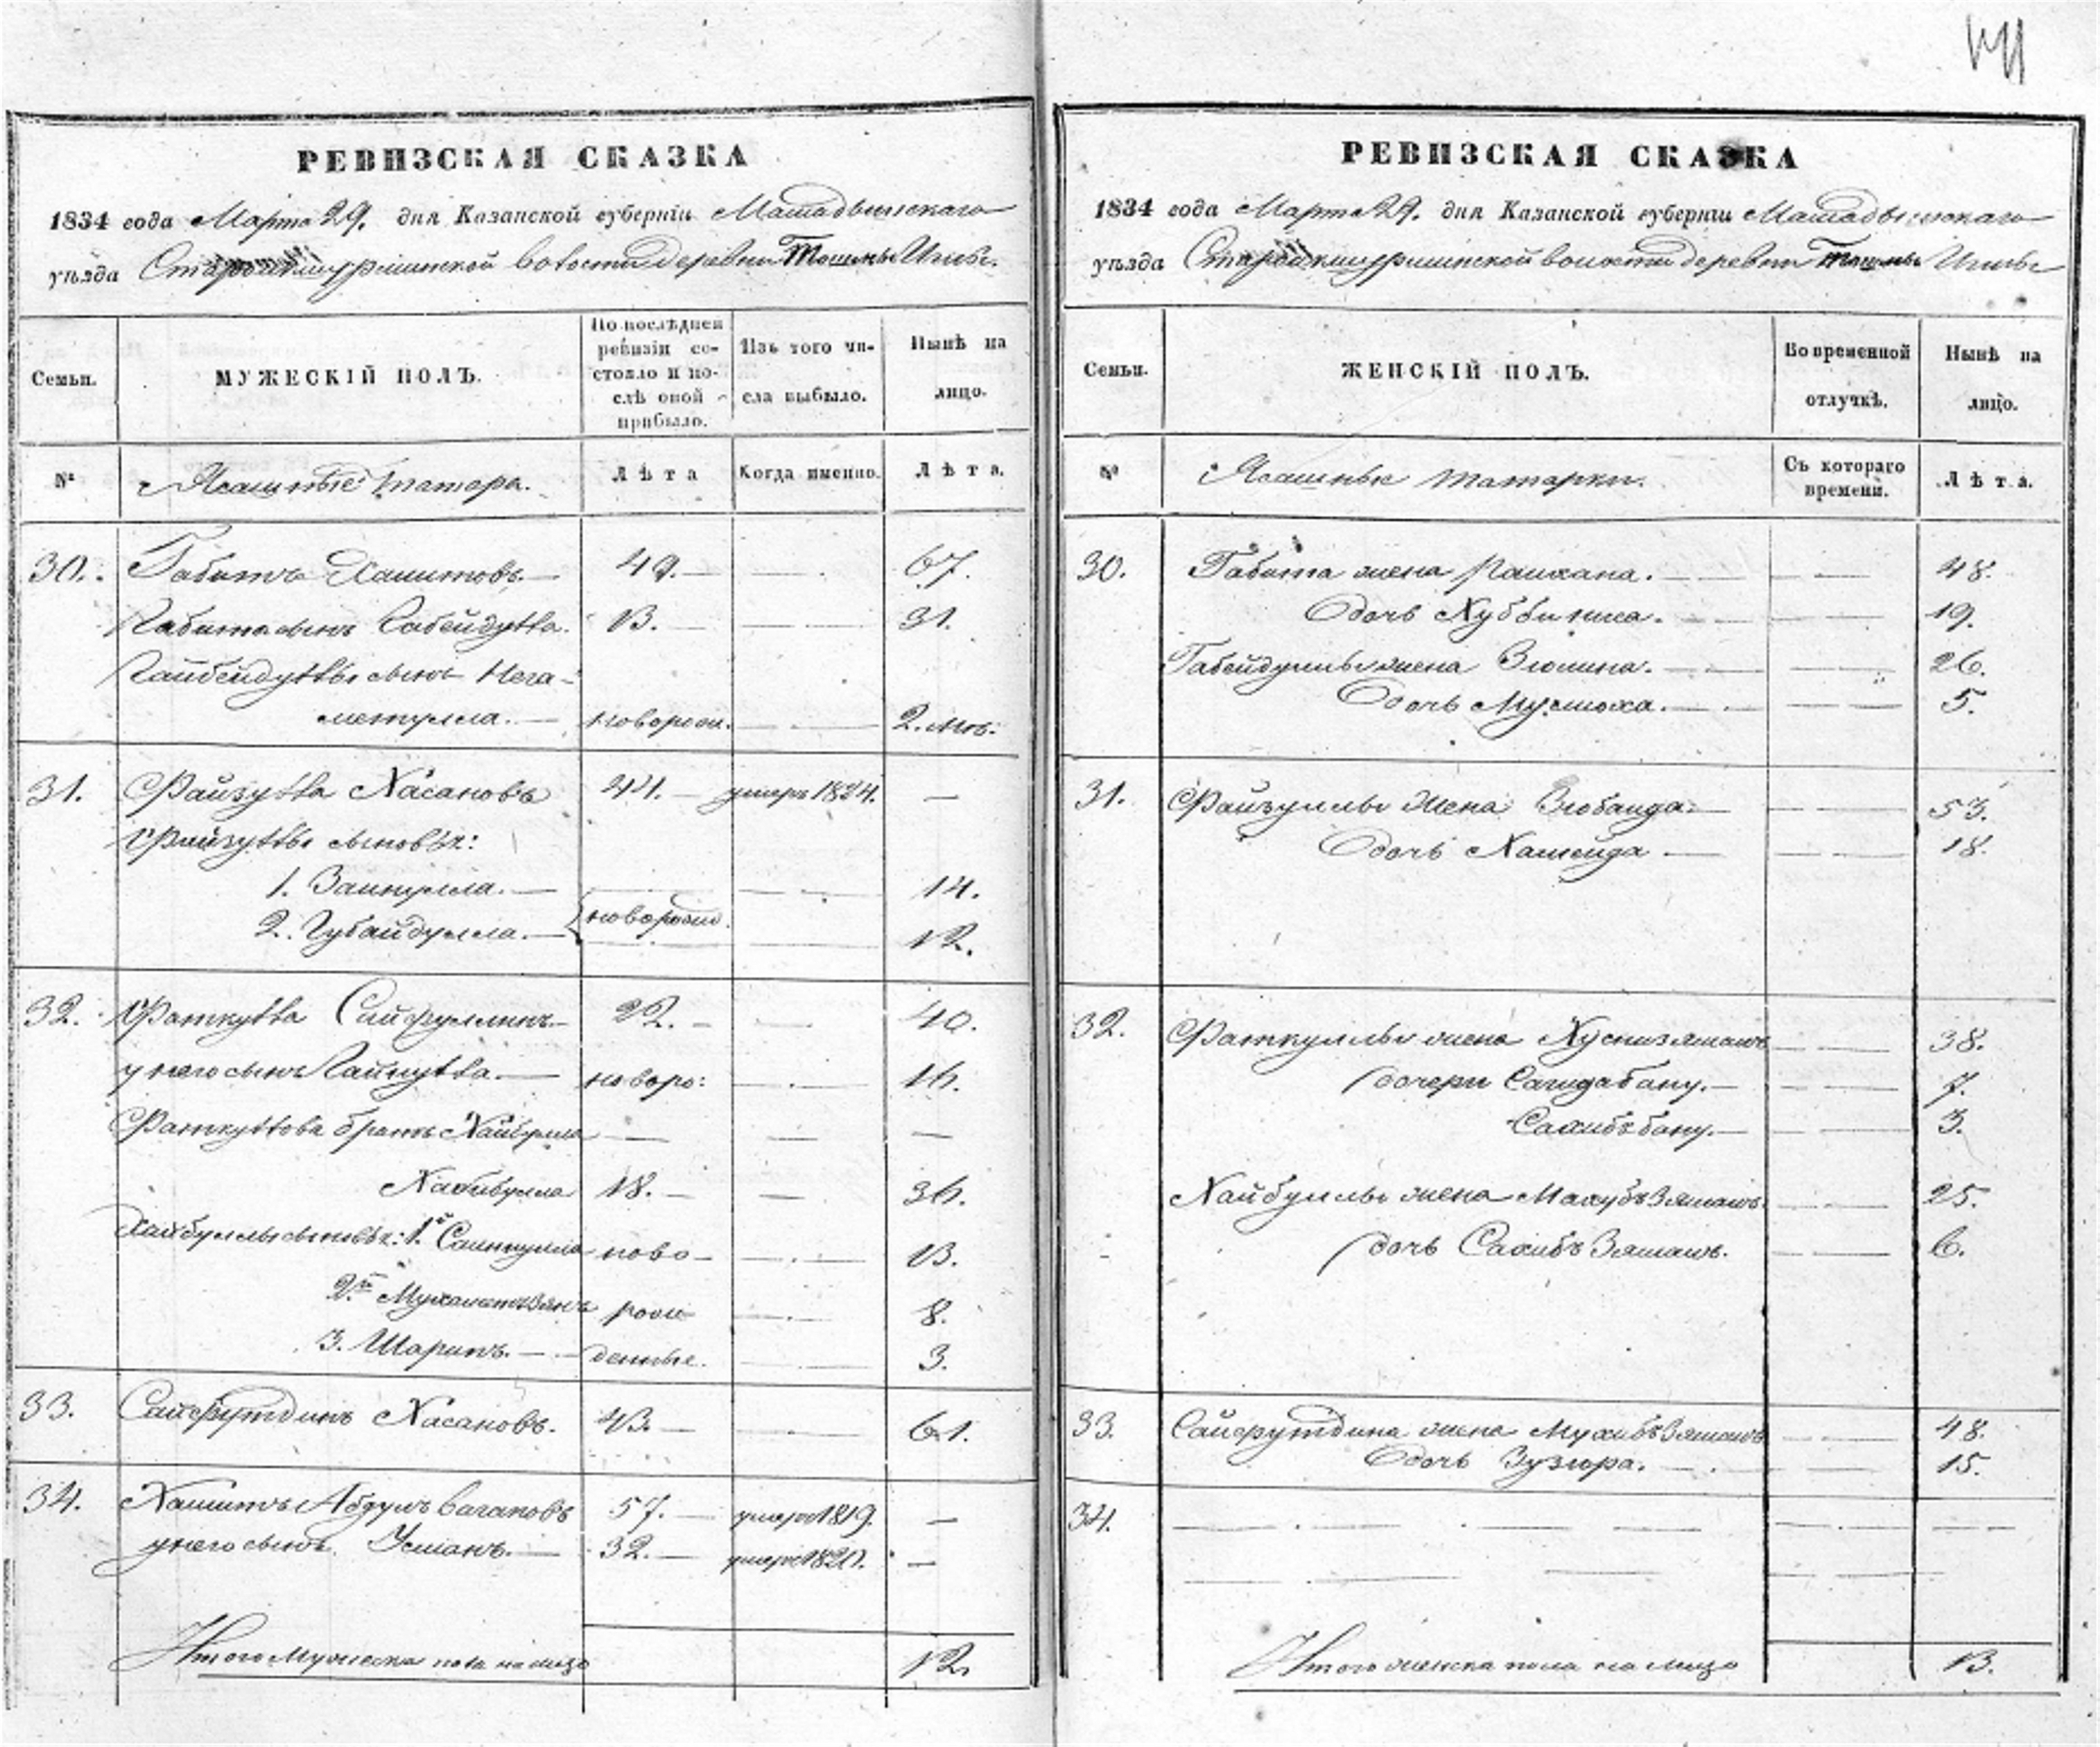 РЕВИЗСКАЯ СКАЗКА
1834 года Марта 29. дня Казанской губерніи Мамадышскаго
уѣзда волости деревни Игили.
Семьи.
МУЖЕСКІЙ ПОЛЪ.
По послѣдней
ревизіи со-
стояло и по-
слѣ оной
прибыло.
Изъ того чи-
сла выбыло.
Нынѣ на
лицо.
№
Ясашные татара.
Лѣта
Когда именно.
Лѣта.
30. Габитъ Хамитовъ. 49. 67.
Габита сынъ Габейдулла. 13. 31.
Гайбейдуллы сынъ Нега-
метулла. новорож. 2. мѣс.
31. Файзулла Хасановъ 44. умеръ 1824.
Файзуллы сыновья:
1. Зайнулла. 14.
новорожд.
2. Губайдулла. 12.
32. Фаткулла Сайфуллинъ 22. 40.
у него сынъ Гайнулла. новоро: 16.
Фаткуллова братъ Хайбулла
Хабибулла 18. 36.
Хайбуллы сыновья: 1й Саинкулла ново 13.
2й Мухаметзянъ рож 8.
3. Шарипъ. денные. 3.
33. Сайфутдинъ Хасановъ. 43. 61.
34. Хамитъ Абдулъ Вагаповъ 57. умеръ 1819.
у него сынъ Усманъ. 32. умеръ 1820.
Итого Мужеска пола на лицо 12.
РЕВИЗСКАЯ СКАЗКА
1834 года Марта 29. дня Казанской губерніи Мамадышскаго
уѣзда волости деревни Игили
Семьи.
ЖЕНСКІЙ ПОЛЪ.
Во временной
отлучкѣ.
Нынѣ на
лицо.
№
Ясашныя татарки.
Съ котораго
времени.
Лѣта.
30. Габита жена Раихана. 48.
дочь Хуббиниса. 19.
Габейдуллы жена Зюлина. 26.
дочь 5.
31. Файзуллы жена Зюбаида. 53.
дочь Хамейда 18.
32. Фаткуллы жена Хуснизямалъ 38.
дочери Сагидабану. 7.
Сахибъбану. 3.
Хайбуллы жена Махубъзямалъ. 25.
дочь Сахибъ Зямалъ. 6.
33. Сайфутдина жена Мухибъзямалъ 48.
дочь Зузюра. 15.
34.
Итого женска пола на лицо 13.